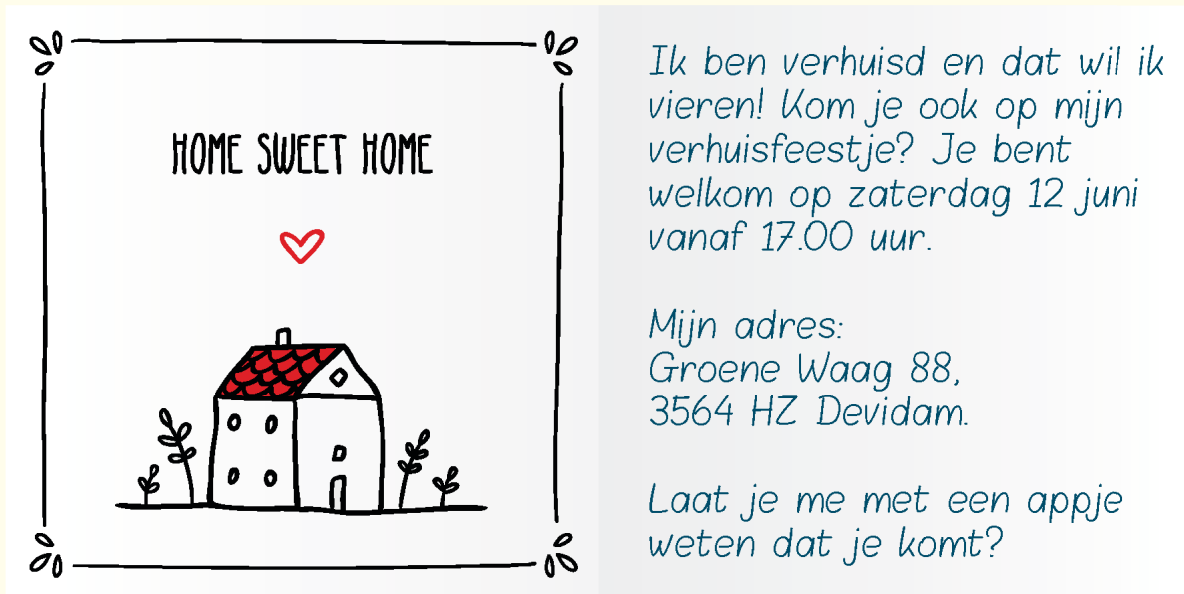 HOME SWEET HOME
Ik ben verhuisd en dat wil ik
vieren! Kom je ook op mijn
verhuisfeestje? Je bent
welkom op zaterdag 12 juni
vanaf 17.00 uur.
Mijn adres:
Groene Waag 88,
3564 HZ Devidam.
Laat je me met een appje
weten dat je komt?